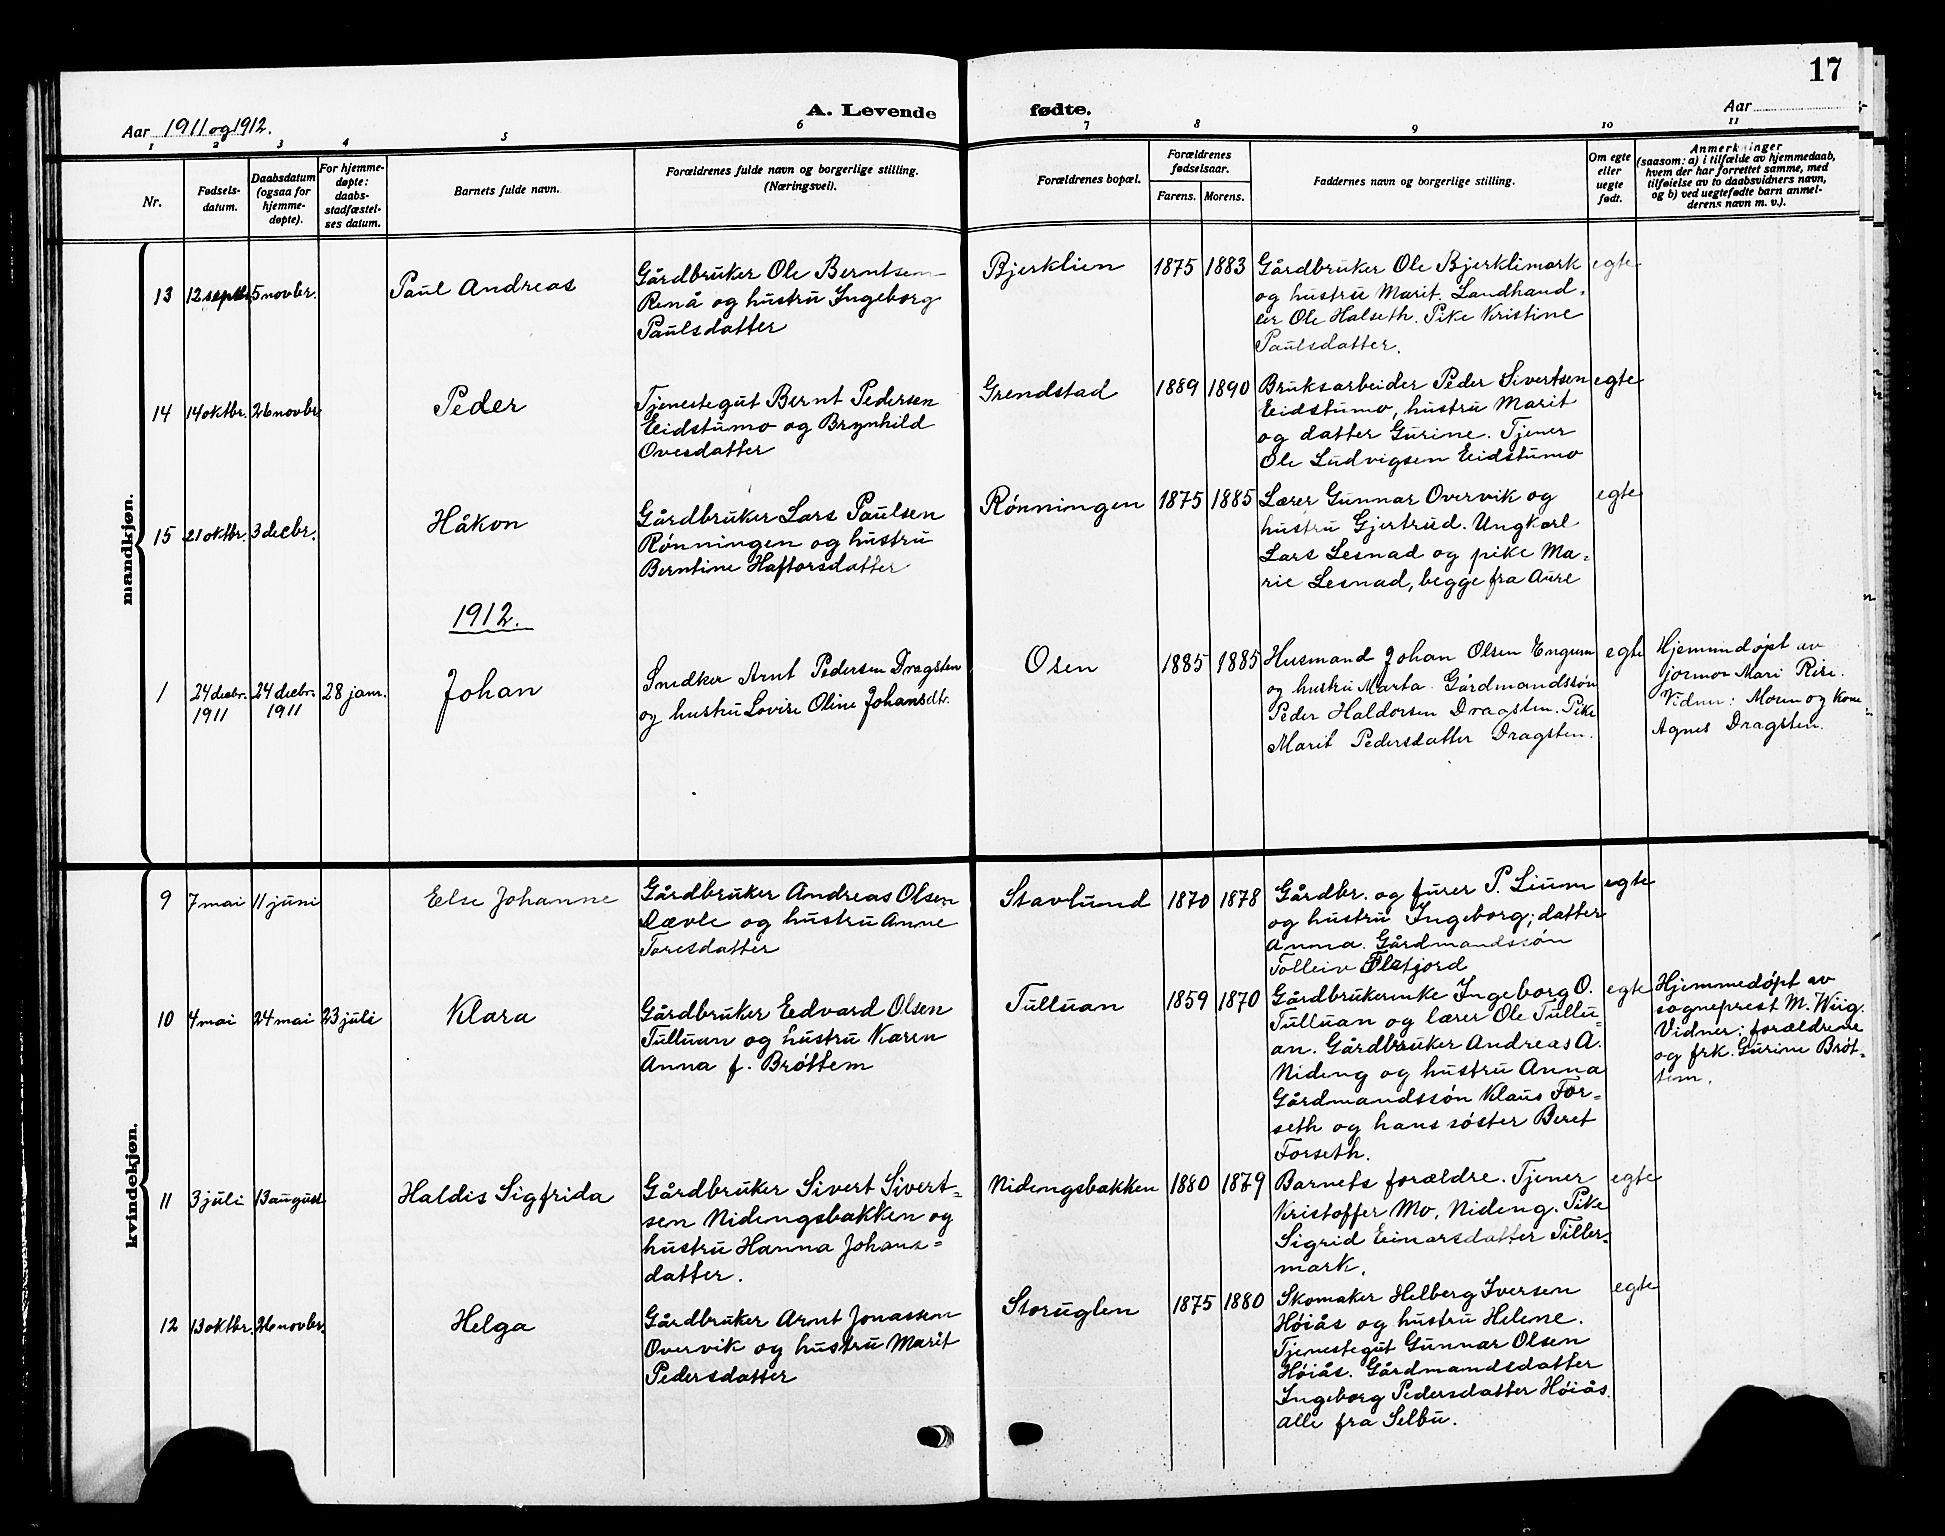 17
A. Levende fødte.
Aar 1911 og 1912.
Aar
1 2 3 4 5 6 7 8 9 10 11
Nr.
Fødsels-
datum.
Daabsdatum
(ogsaa for
hjemme-
døpte).
For hjemme-
døpte:
daabs-
stadfæstel-
ses datum.
Barnets fulde navn.
Forældrenes fulde navn og borgerlige stilling.
(Næringsvei).
Forældrenes bopæl.
Forældrenes
fødselsaar.
Farens. Morens.
Faddernes navn og borgerlige stilling.
Om egte
eller
uegte
født.
Anmerkninger
(saasom: a) i tilfælde av hjemmedaab,
hvem der har forrettet samme, med
tilføielse av to daabsvidners navn,
og b) ved uegtefødte barn anmel-
derens navn m. v.).
mandkjøn.
13 12 septbr. 5 novbr.
Paul Andreas
Gårdbruker Ole Berntsen
Renå og hustru Ingeborg
Paulsdatter
Bjerklien
1875 1883
Gårdbruker Ole Bjerklimark
og hustru Marit. Landhand-
ler Ole Halseth. Pike Kristine
Paulsdatter.
egte
14 14 oktbr. 26 novbr.
Peder
Tjenestegut Bernt Pedersen
Eidstumo og Brynhild
Ovesdatter
Grendstad
1889 1890
Bruksarbeider Peder Sivertsen
Eidstumo, hustru Marit
og datter Gurine. Tjener
Ole Ludvigsen Eidstumo
egte
15 21 oktbr. 3 decbr.
Håkon
Gårdbruker Lars Paulsen
Rønningen og hustru
Berntine Haftorsdatter
Rønningen
1875 1885
Lærer Gunnar Overvik og
hustru Gjertrud. Ungkarl
Lars Lesnad og pike Ma-
rie Lesnad, begge fra Aure
egte
1912.
1 24 decbr. 1911 24 decbr. 1911 28 jan.
Johan
Snedker Arnt Pedersen Dragsten
og hustru Lovise Oline Johansdtr.
Osen
1885 1885
Husmand Johan Olsen Engum
og hustru Marta. Gårdmandssøn
Peder Haldorsen Dragsten. Pike
Marit Pedersdatter Dragsten.
egte
Hjemmedøpt av
jormor Mari Rise.
Vidner: Moren og kone
Agnes Dragsten.
kvindekjøn.
9 7 mai 11 juni
Else Johanne
Gårdbruker Andreas Olsen
Dævle og hustru Anne
Toresdatter
Stavlund
1870 1878
Gårdbr. og furer P. Lium
og hustru Ingeborg; datter
Anna. Gårdmandssøn
Tolleiv Flatfjord
egte
10 4 mai 24 mai 23 juli
Klara
Gårdbruker Edvard Olsen
Tulluan og hustru Karen
Anna f. Brøttem
Tulluan
1859 1870
Gårdbrukerenke Ingeborg O.
Tulluan og lærer Ole Tullu-
an. Gårdbruker Andreas A.
Nideng og hustru Anna
Gårdmandssøn Klaus For-
seth og hans søster Beret
Forseth.
egte
Hjemmedøpt av
sogneprest M. Wiig.
Vidner: forældrene
og frk. Gurine Brøt-
tem.
11 3 juli 13 august
Haldis Sigfrida
Gårdbruker Sivert Sivert-
sen Nidengsbakken og
hustru Hanna Johans-
datter.
Nidengsbakken
1880 1879
Barnets forældre. Tjener
Kristoffer Mo, Nideng. Pike
Sigrid Einarsdatter Tiller-
mark.
egte
12 13 oktbr. 26 novbr.
Helga
Gårdbruker Arnt Jonassen
Overvik og hustru Marit
Pedersdatter
Storuglen
1875 1880
Skomaker Helberg Iversen
Høiås og hustru Helene.
Tjenestegut Gunnar Olsen
Høiås. Gårdmandsdatter
Ingeborg Pedersdatter Høiås
alle fra Selbu.
egte